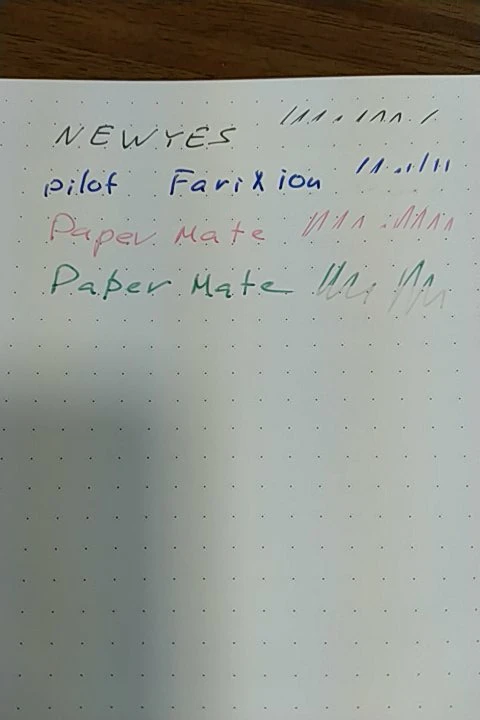 NEWYES
pilot Farixion
Paper Mate
Paper Mate